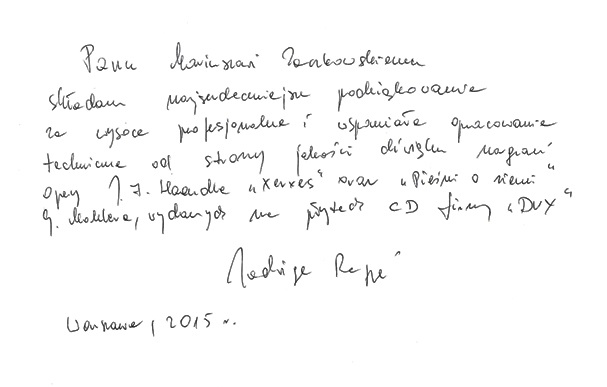 Panu
składam najserdeczniejsze podziękowanie
za wysoce profesjonalne i wspaniałe opracowanie
techniczne od strony jakości dźwięku nagrań
opery J. F. Haendla „Xerxes" oraz „Pieśni o ziemi"
G. Mahlera, wydanych na płytach CD firmy „DUX"
Jadwiga Rappé
Warszawa, 2015 r.